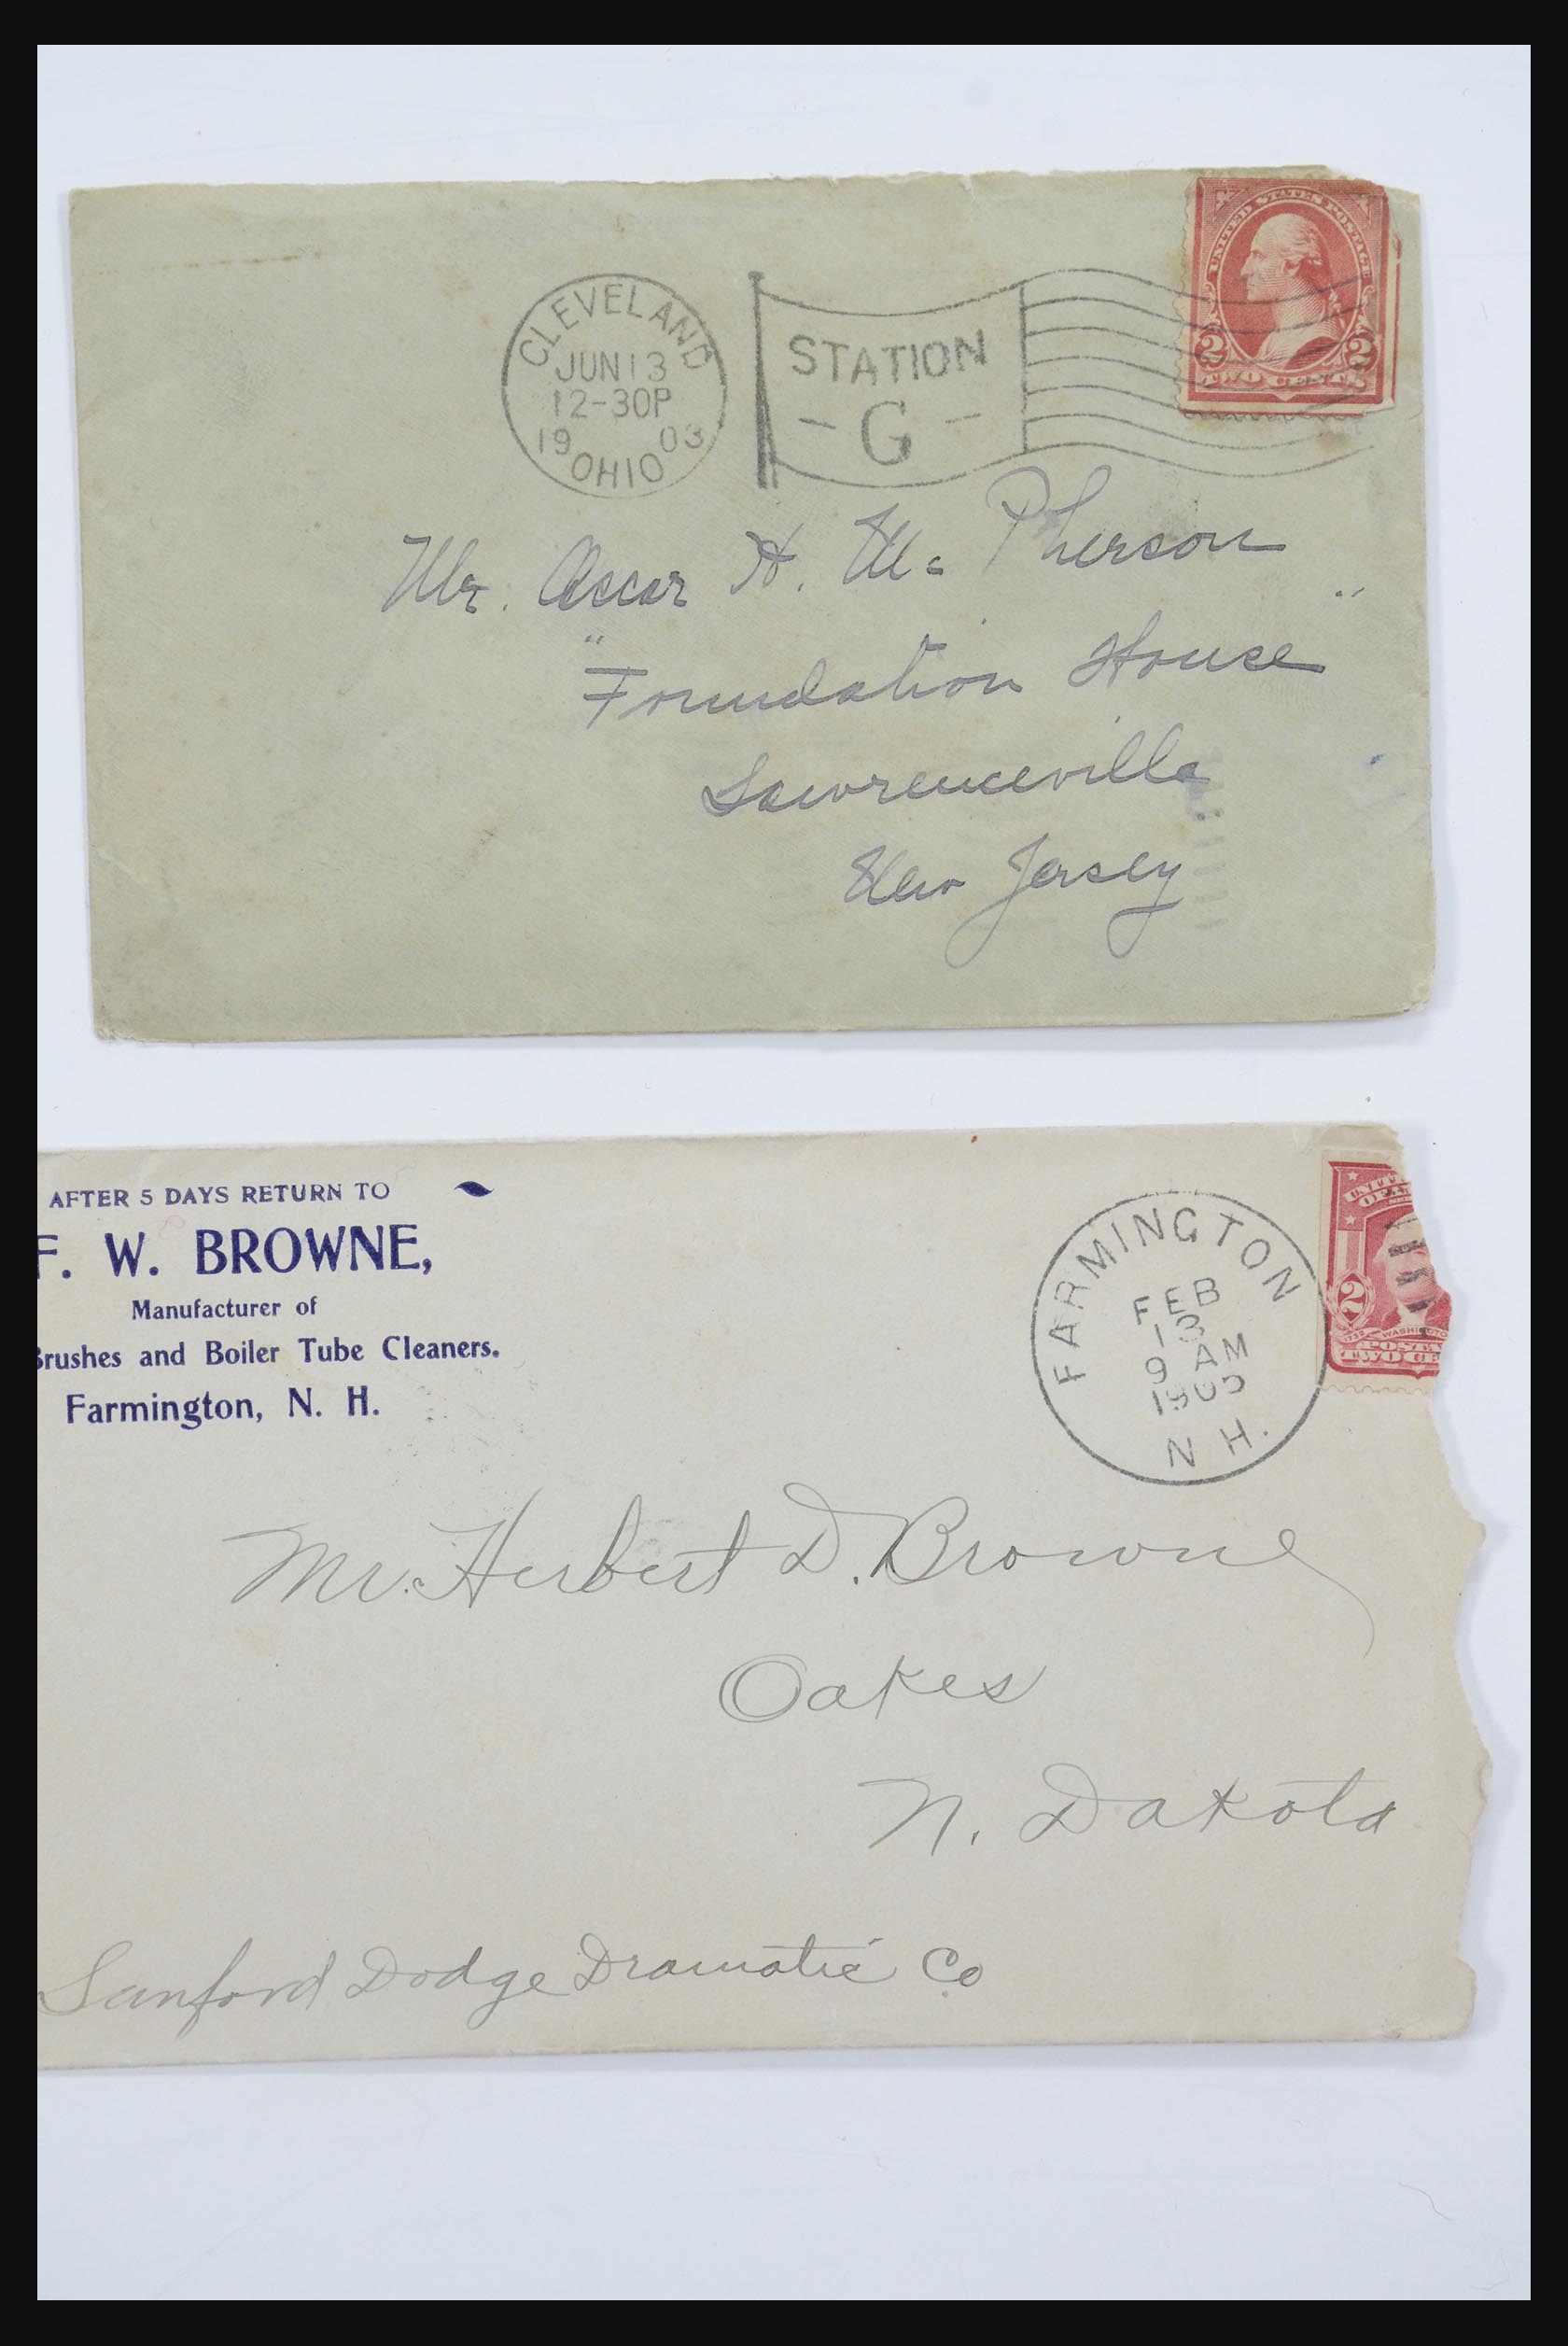 CLEVELAND
JUN 13
12-30P
19 03
OHIO
STATION
- G -
UNITED STATES POSTAGE
2 2
TWO CENTS
Mr. Oscar H. Mc Pherson
"Foundation House"
Lawrenceville
New Jersey
AFTER 5 DAYS RETURN TO
F. W. BROWNE,
Manufacturer of
Brushes and Boiler Tube Cleaners.
Farmington, N. H.
FARMINGTON
FEB
13
9 AM
1905
N H.
2
Mr. Herbert D. Browne
Oakes
N. Dakota
Sanford Dodge Dramatic Co